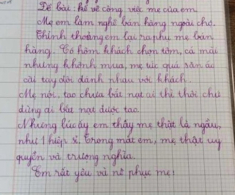 Đề bài: kể về công việc mẹ của em.
Mẹ em làm nghề bán hàng ngoài chợ.
Thỉnh thoảng em lại ra phụ mẹ bán
hàng. Có hôm khách chọn tôm, cá mãi
nhưng không mua, mẹ tức quá xắn áo
cãi tay đôi đánh nhau với khách.
Mẹ nói, tao chưa bắt nạt ai thì thôi chứ
đừng ai bắt nạt được tao.
Những lúc ấy em thấy mẹ thật là ngầu,
như 1 hiệp sĩ. Trong mắt em, mẹ thật uy
quyền và trượng nghĩa.
Em rất yêu và nể phục mẹ!